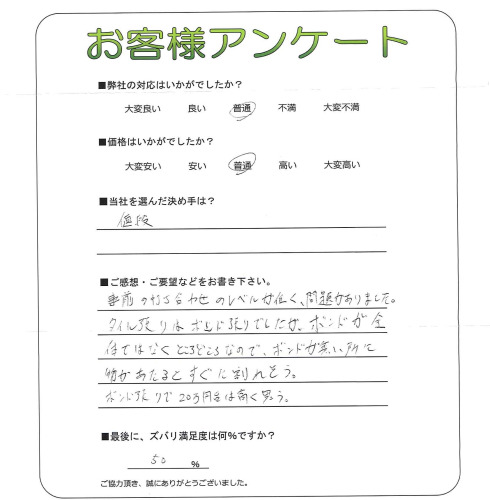 お客様アンケート
■弊社の対応はいかがでしたか?
大変良い 良い 普通 不満 大変不満
■価格はいかがでしたか?
大変安い 安い 普通 高い 大変高い
■当社を選んだ決め手は?
価段
■ご感想・ご要望などをお書き下さい。
事前の打ち合わせのレベルが低く、問題がありました。
タイル張りはボンド張りでしたが、ボンドが全
体ではなくところどころなので、ボンドが無い所に
物があたるとすぐに割れそう。
ボンド張りで20万円台は高く思う。
■最後に、ズバリ満足度は何%ですか?
50 %
ご協力頂き、誠にありがとうございました。